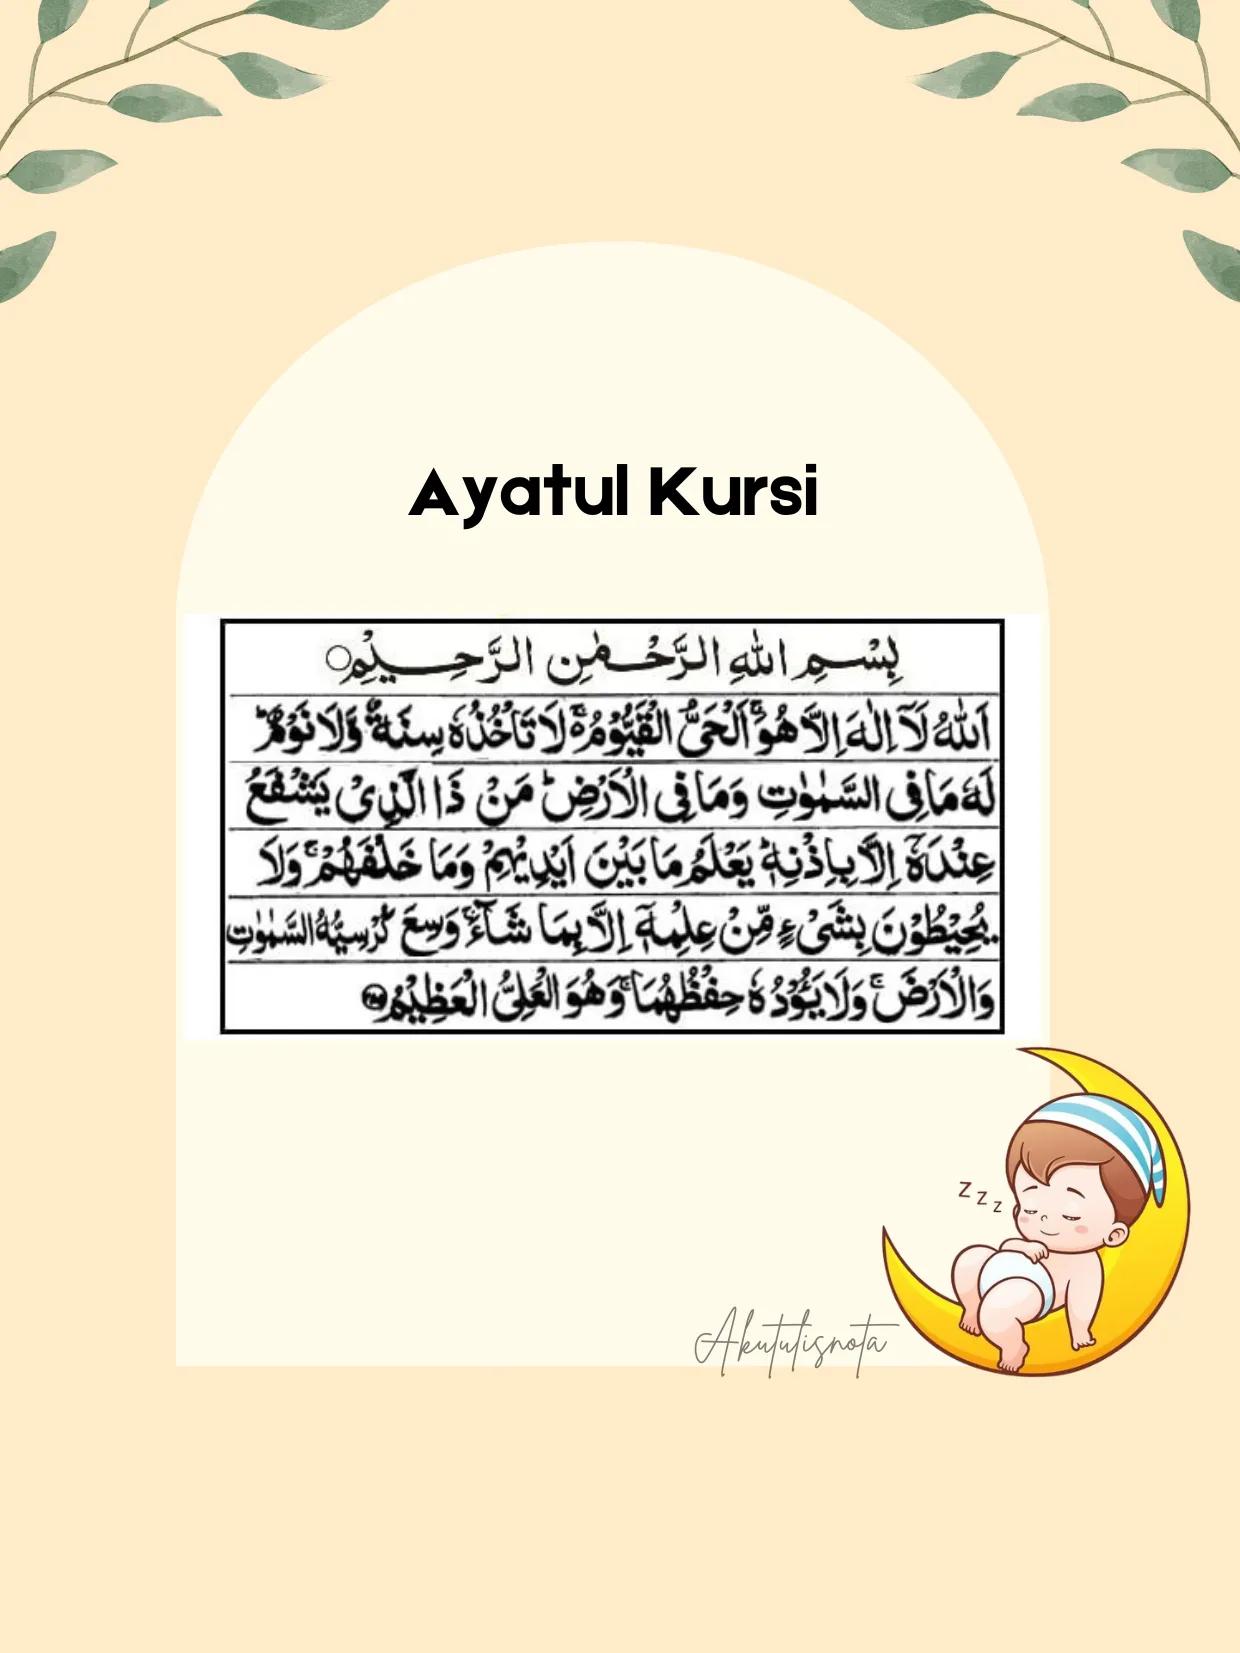 Ayatul Kursi
بِسْمِ اللهِ الرَّحْمٰنِ الرَّحِيْمِ
اَللّٰهُ لَآ اِلٰهَ اِلَّا هُوَ ۚ اَلْحَىُّ الْقَيُّوْمُ ۬ۚ لَا تَاْخُذُهٗ سِنَةٌ وَّلَا نَوْمٌ ؕ
لَهٗ مَا فِى السَّمٰوٰتِ وَمَا فِى الْاَرْضِ ؕ مَنْ ذَا الَّذِىْ يَشْفَعُ
عِنْدَهٗۤ اِلَّا بِاِذْنِهٖ ؕ يَعْلَمُ مَا بَيْنَ اَيْدِيْهِمْ وَمَا خَلْفَهُمْ ۚ وَلَا
يُحِيْطُوْنَ بِشَىْءٍ مِّنْ عِلْمِهٖۤ اِلَّا بِمَا شَآءَ ۚ وَسِعَ كُرْسِيُّهُ السَّمٰوٰتِ
وَالْاَرْضَ ۚ وَلَا يَـُٔوْدُهٗ حِفْظُهُمَا ۚ وَهُوَ الْعَلِىُّ الْعَظِيْمُ
z z z
Akutulisnota